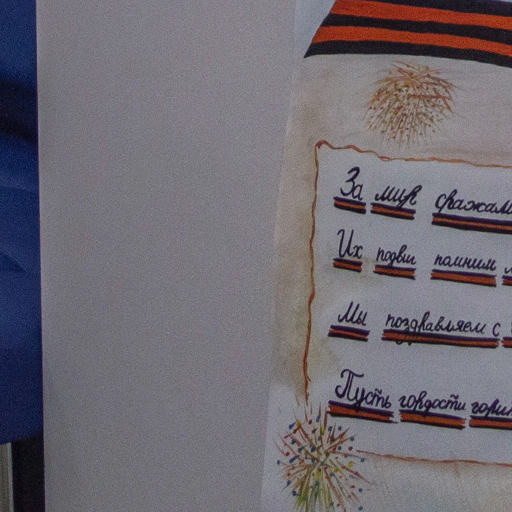 За мир сражали
Их подвиг помним
Мы поздравляем с
Пусть гордости горит